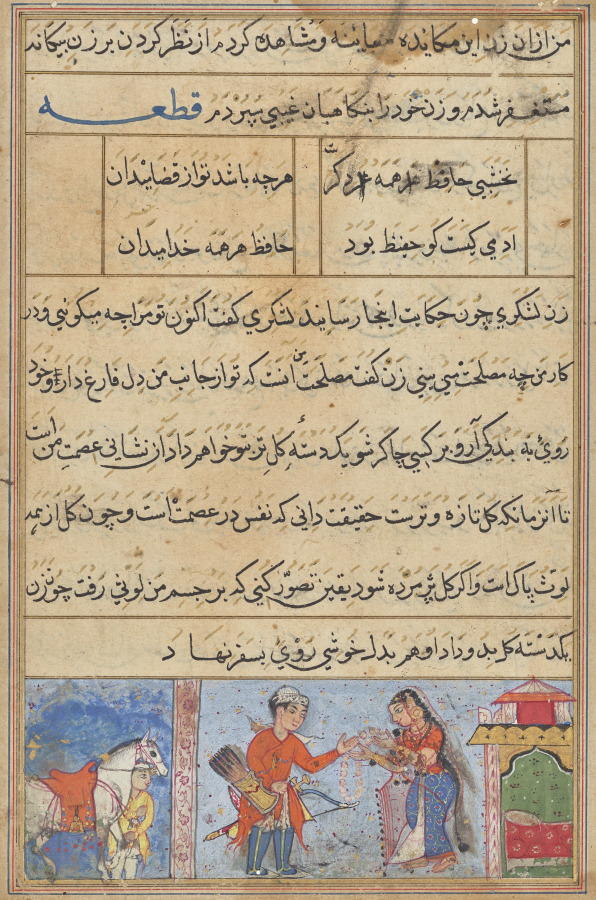 من ازان زن این مکایده معاینه و مشاهده کردم از نظر کردن بر زن بیکانه
مستغفر شدم و زن خود را بنکاهبان غیبی سپردم قطعه
نخشبی حافظ هرچه باشد تو از قضا میدان
ادمی کیست کو حفیظ بود حافظ هر همه خدا میدان
زن لشکری چون حکایت اینجا رسانید لشکری کفت اکنون تو مرا چه میکوئی و در
کار من چه مصلحت می بینی زن کفت مصلحت من انست که تو از جانب من دل فارغ داری و خود
روی به بندکی آرو بر کسی چاکر شو یک دسته کل تر بتو خواهم داد از نشانی عصمت من است
تا انزمانکه کل تازه و ترست حقیقت دانی که نفس در عصمت است و چون کل از همه
لوث پاک است و اکر کل پژمرده شود یقین تصور کنی که بر جسم من لوثی رفت چون زن
یکدسته کل بدو داد او هم بدل خوشی روی بسفر نهاد